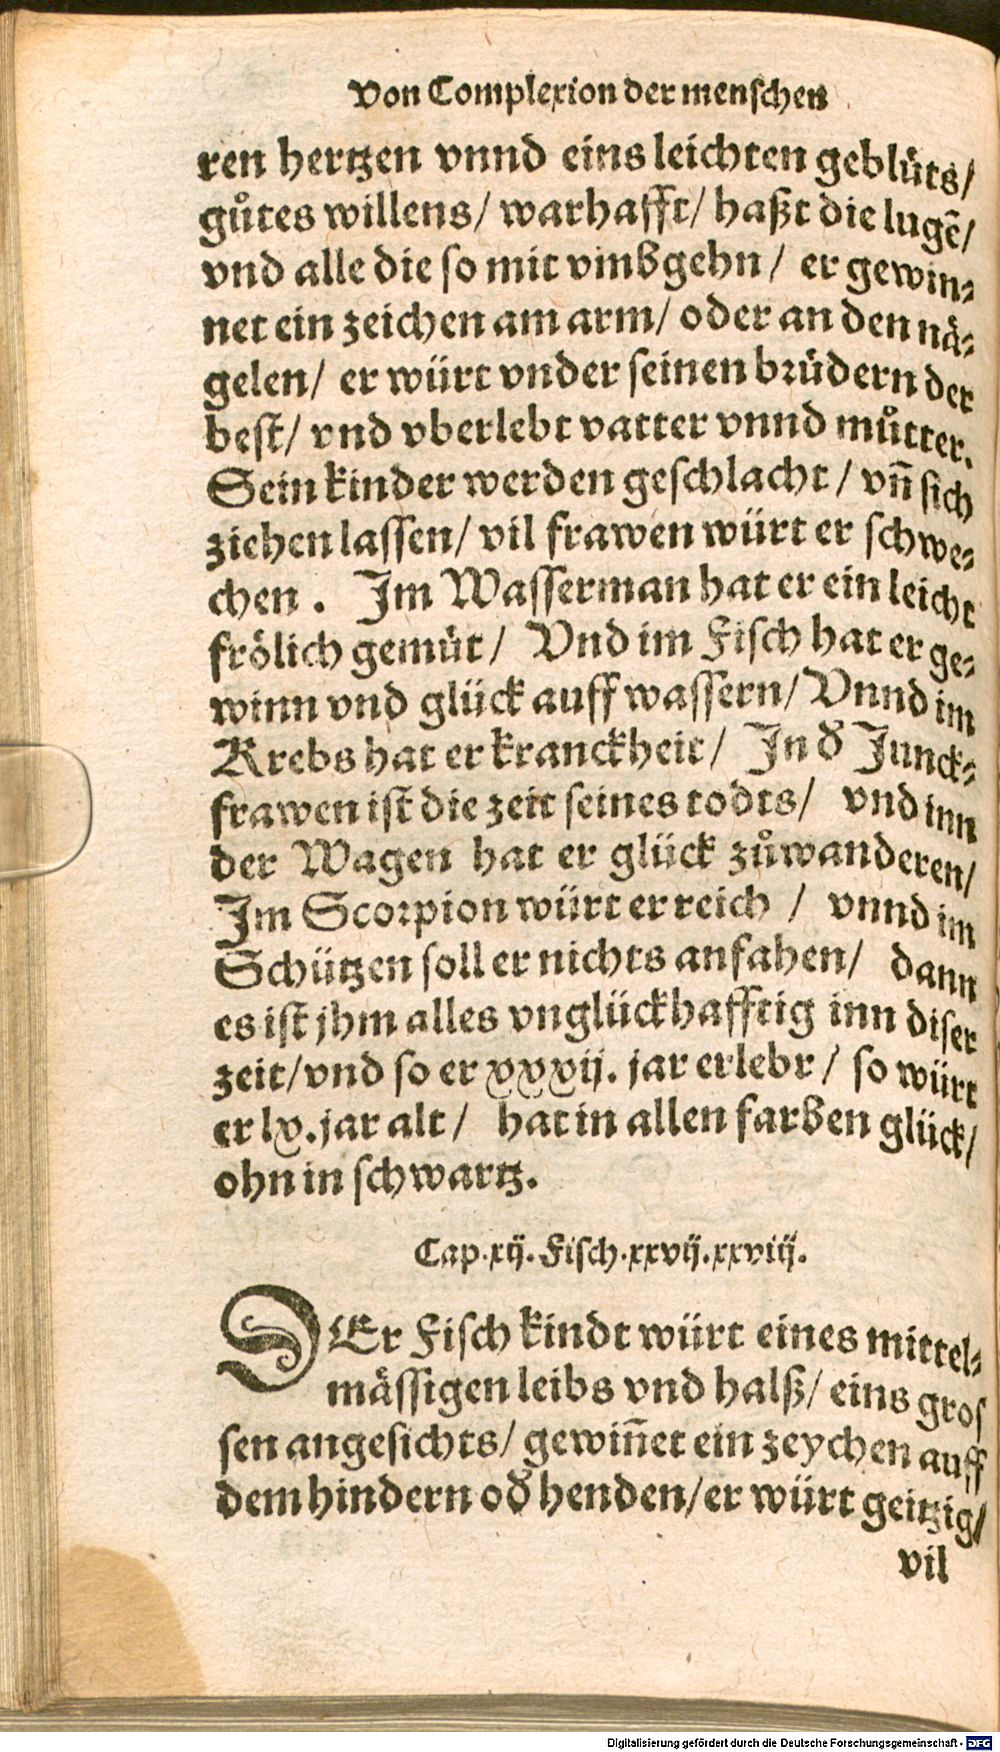 Von Complexion der menſchen
ren hertzen vnnd eins leichten geblüts/
gůtes willens/ warhafft/ haßt die lugẽ/
vnd alle die ſo mit vmbgehn/ er gewin⸗
net ein zeichen am arm/ oder an den nä⸗
gelen/ er würt vnder ſeinen brüdern der
beſt/ vnd vberlebt vatter vnnd můtter.
Sein kinder werden geſchlacht/ vñ ſich
ziehen laſſen/ vil frawen würt er ſchwe⸗
chen. Im Waſſerman hat er ein leicht
frölich gemüt/ Vnd im Fiſch hat er ge⸗
winn vnd glück auff waſſern/ Vnnd im
Krebs hat er kranckheit/ In d̕ Junck⸗
frawen iſt die zeit ſeines todts/ vnd inn
der Wagen hat er glück zůwanderen/
Im Scorpion würt er reich / vnnd im
Schützen ſoll er nichts anfahen/ dann
es iſt jhm alles vnglückhafftig inn diſer
zeit/ vnd ſo er xxxij. jar erlebr/ ſo würt
er lx. jar alt/ hat in allen farben glück/
ohn in ſchwartz.
Cap. xij. Fiſch. xxvij. xxviij.
DEr Fiſch kindt würt eines mittel⸗
mäſſigen leibs vnd halß/ eins groſ
ſen angeſichts/ gewiñet ein zeychen auff
dem hindern od̕ henden/ er würt geitzig/
vil
Digitalisierung gefördert durch die Deutsche Forschungsgemeinschaft - DFG